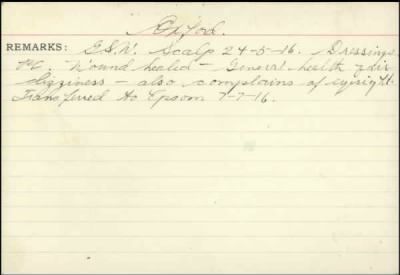 Oxford.
REMARKS: G.S.W. Scalp 24-5-16. Dressings
Wound healed - General health fair
Dizziness - also complains of eyesight.
Transferred to Epsom 7-7-16.